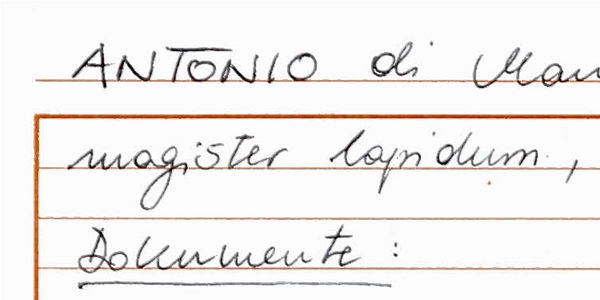 ANTONIO di
magister lapidum,
Dokumente: